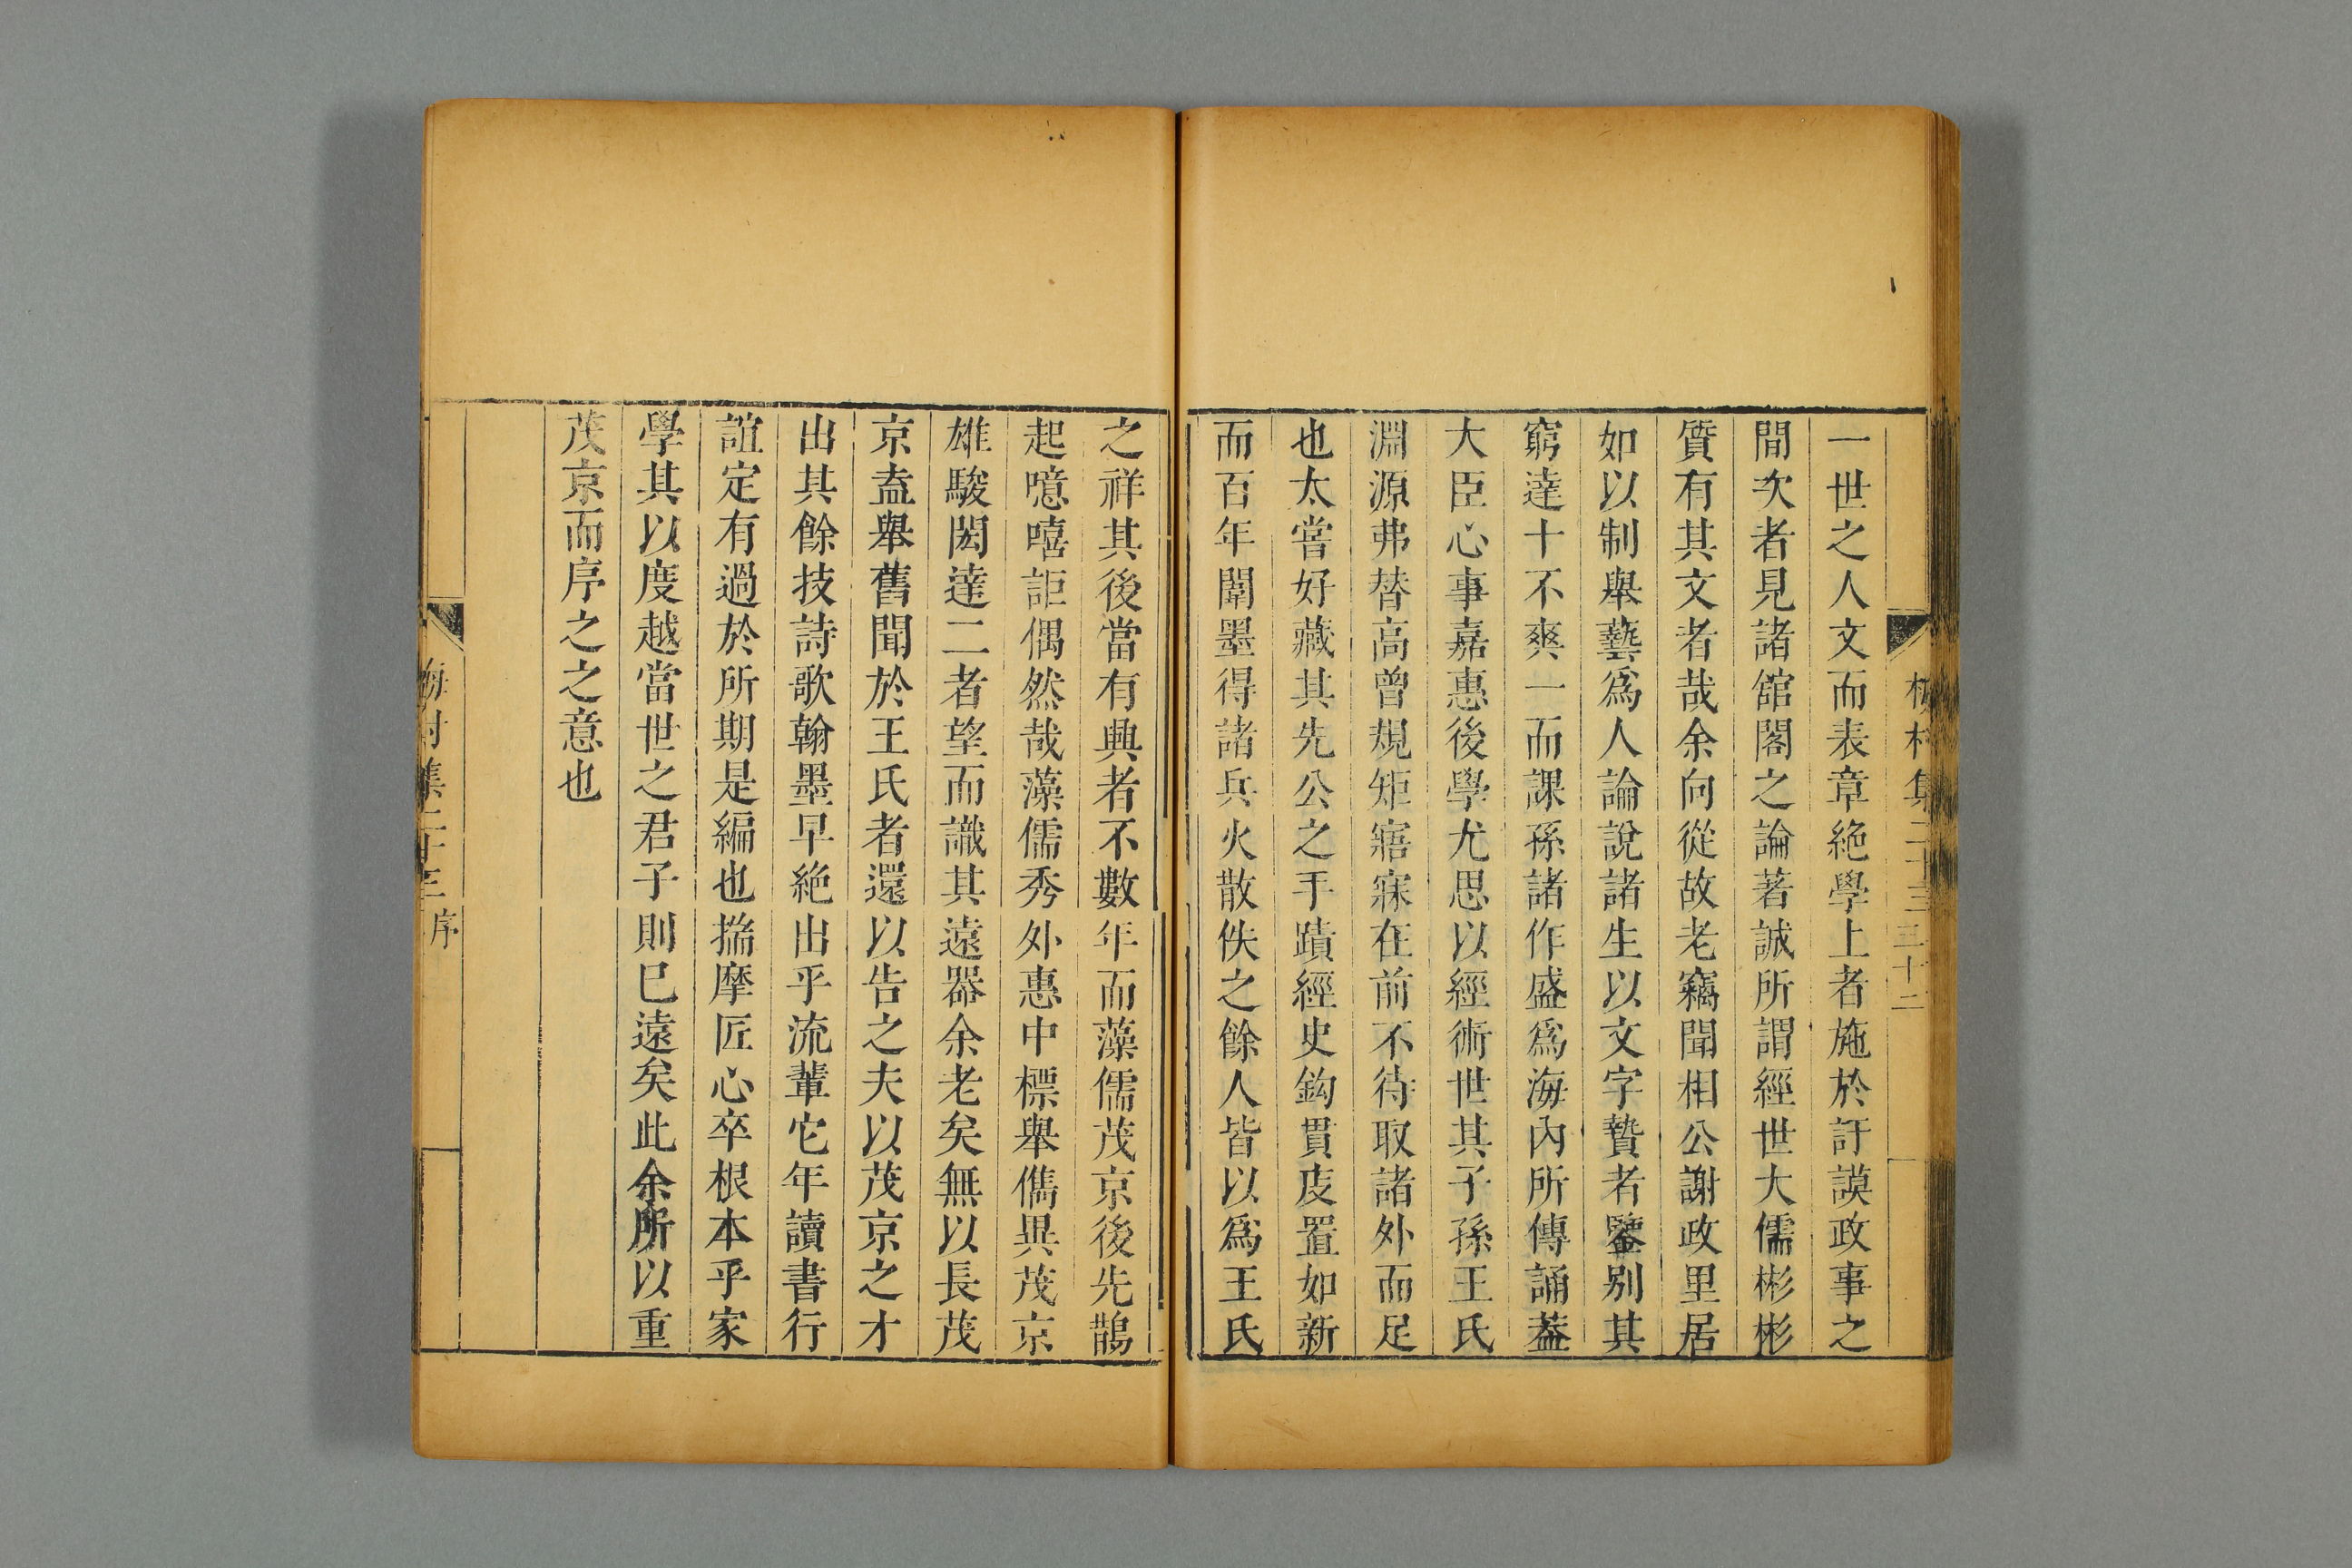 一世之人文而表章絶學上者施於訏謨政事之
間次者見諸舘閣之論著誠所謂經世大儒彬彬
質有其文者哉余向從故老竊聞相公謝政里居
如以制舉藝爲人論說諸生以文字贄者鑒别其
窮達十不爽一而課孫諸作盛爲海内所傳誦葢
大臣心事嘉惠後學尤思以經術世其子孫王氏
淵源弗替高曾規矩寤寐在前不待取諸外而足
也太嘗好藏其先公之手蹟經史鈎貫庋置如新
而百年闈墨得諸兵火散佚之餘人皆以爲王氏
梅村集二十三 三十二
之祥其後當有興者不數年而藻儒茂京後先鵲
起噫嘻詎偶然哉藻儒秀外惠中標舉儁異茂京
雄駿閎達二者望而識其遠器余老矣無以長茂
京盍舉舊聞於王氏者還以告之夫以茂京之才
出其餘技詩歌翰墨早絶出乎流輩它年讀書行
誼定有過於所期是編也揣摩匠心卒根本乎家
學其以度越當世之君子則巳遠矣此余所以重
茂京而序之之意也
梅村集二十三 序